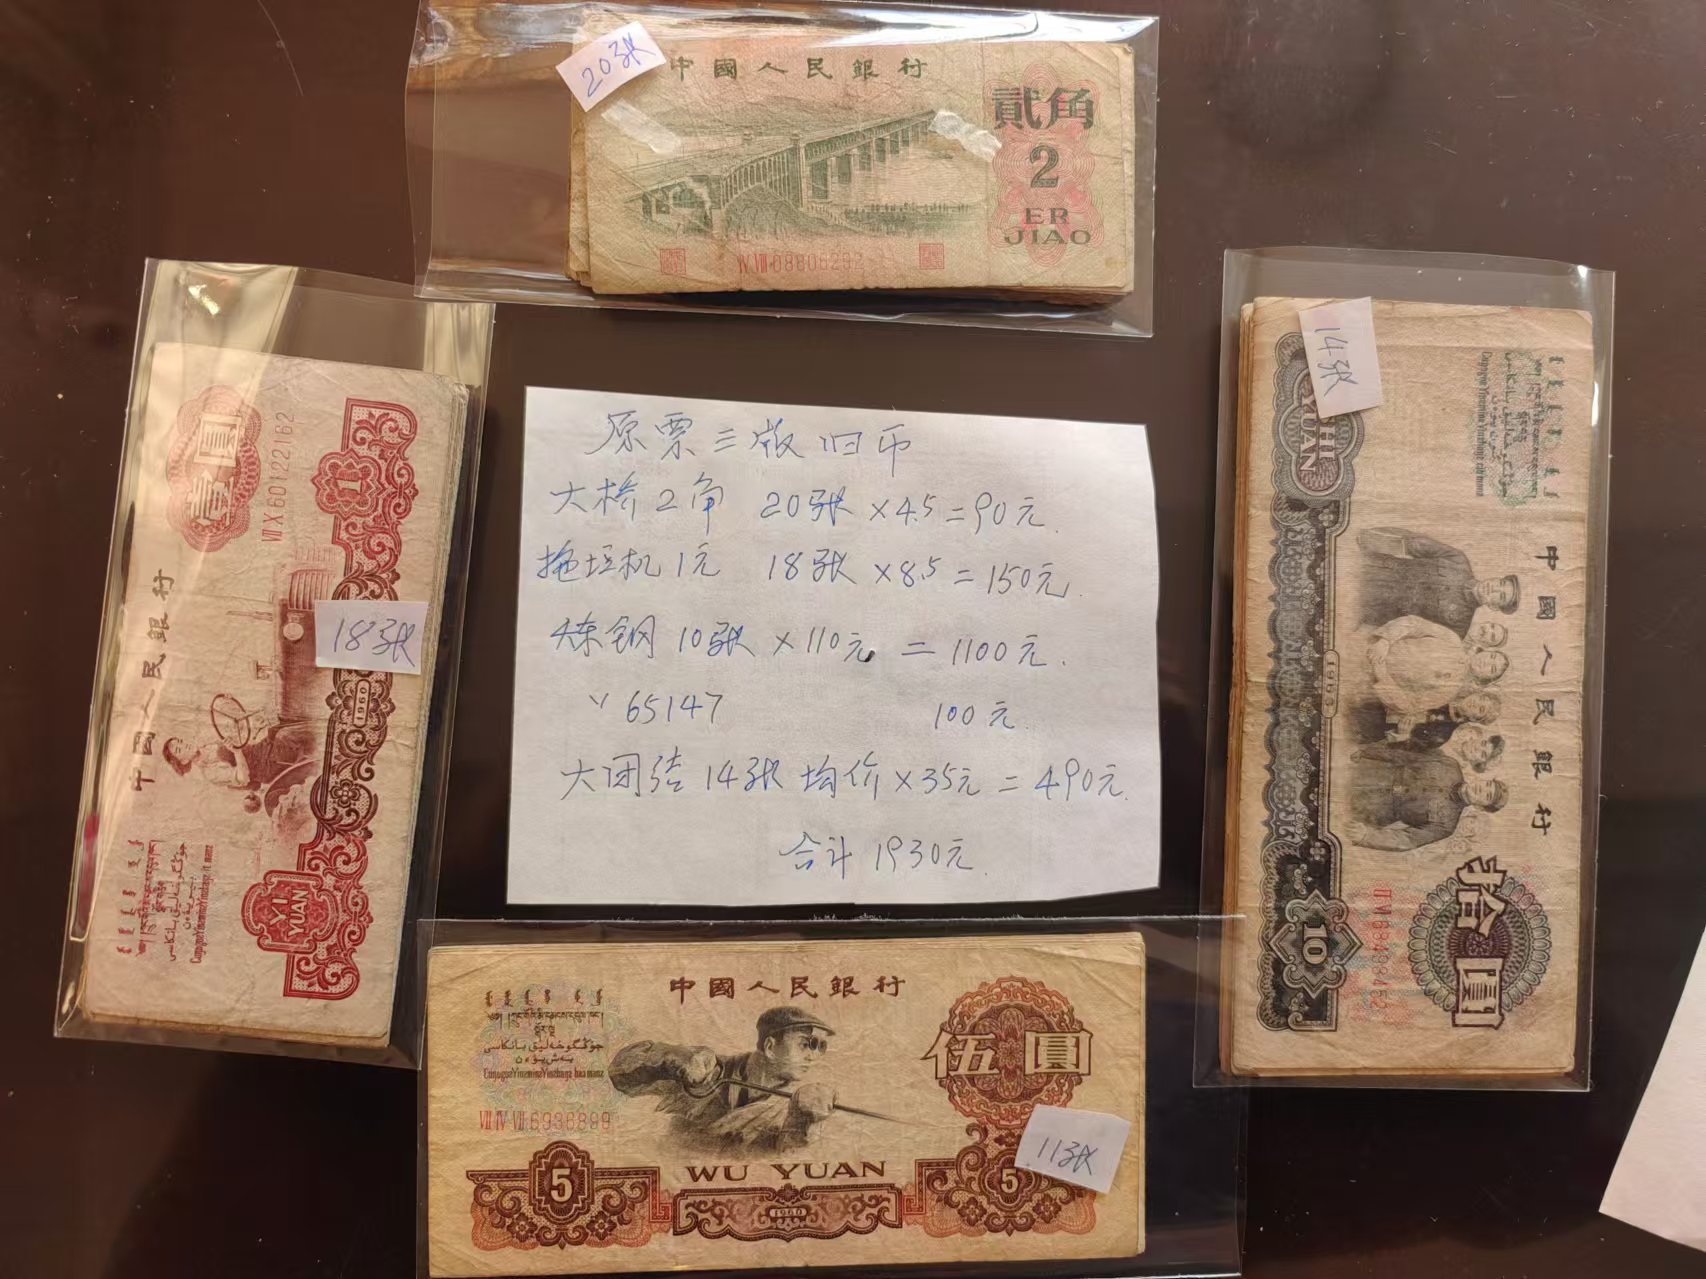 20张
中國人民銀行
貳角
2
ER
JIAO
IV VIII 08806292
壹圓
VII X 60122162
中國人民銀行
18张
1
1960
YI
YUAN
原票三版旧币
大桥2角 20张×4.5=90元.
拖拉机1元 18张×8.5=150元.
炼钢10张×110元=1100元.
〃65147 100元.
大团结14张均价×35元=490元.
合计1930元.
14张
SHI
YUAN
中國人民銀行
1965
拾圓
10
中國人民銀行
伍圓
VIII IV VII 6936899
11张
WU YUAN
5
5
1960